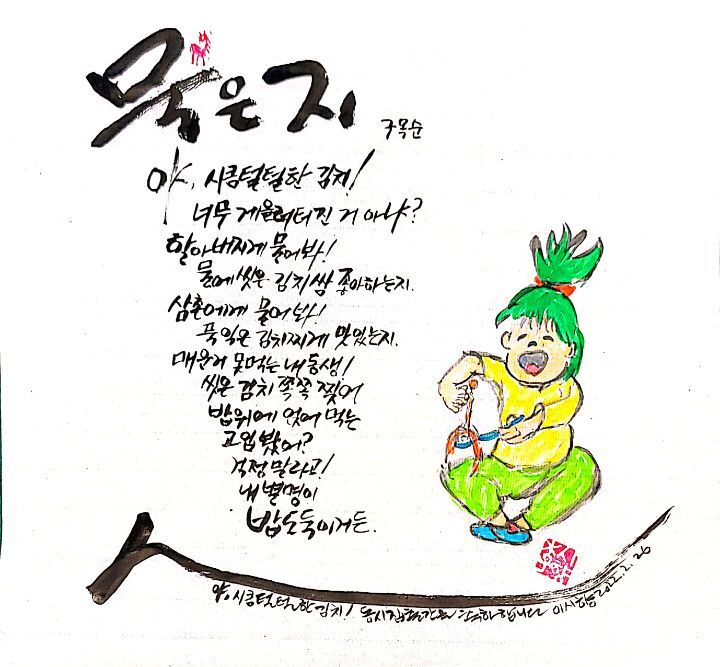 묵은지
구목순
야, 시큼털털한 김치!
너무 게을러터진 거 아냐?
할아버지께 물어봐!
물에 씻은 김치쌈 좋아하는지.
삼촌에게 물어봐!
푹 익은 김치찌개 맛있는지.
매운거 못먹는 내동생!
씻은 김치 쪽쪽 찢어
밥위에 얹어 먹는
고 입 봤어?
걱정말라고!
내 별명이
밥도둑이거든.
야, 시큼털털한 김치! 동시집 출간을 축하합니다